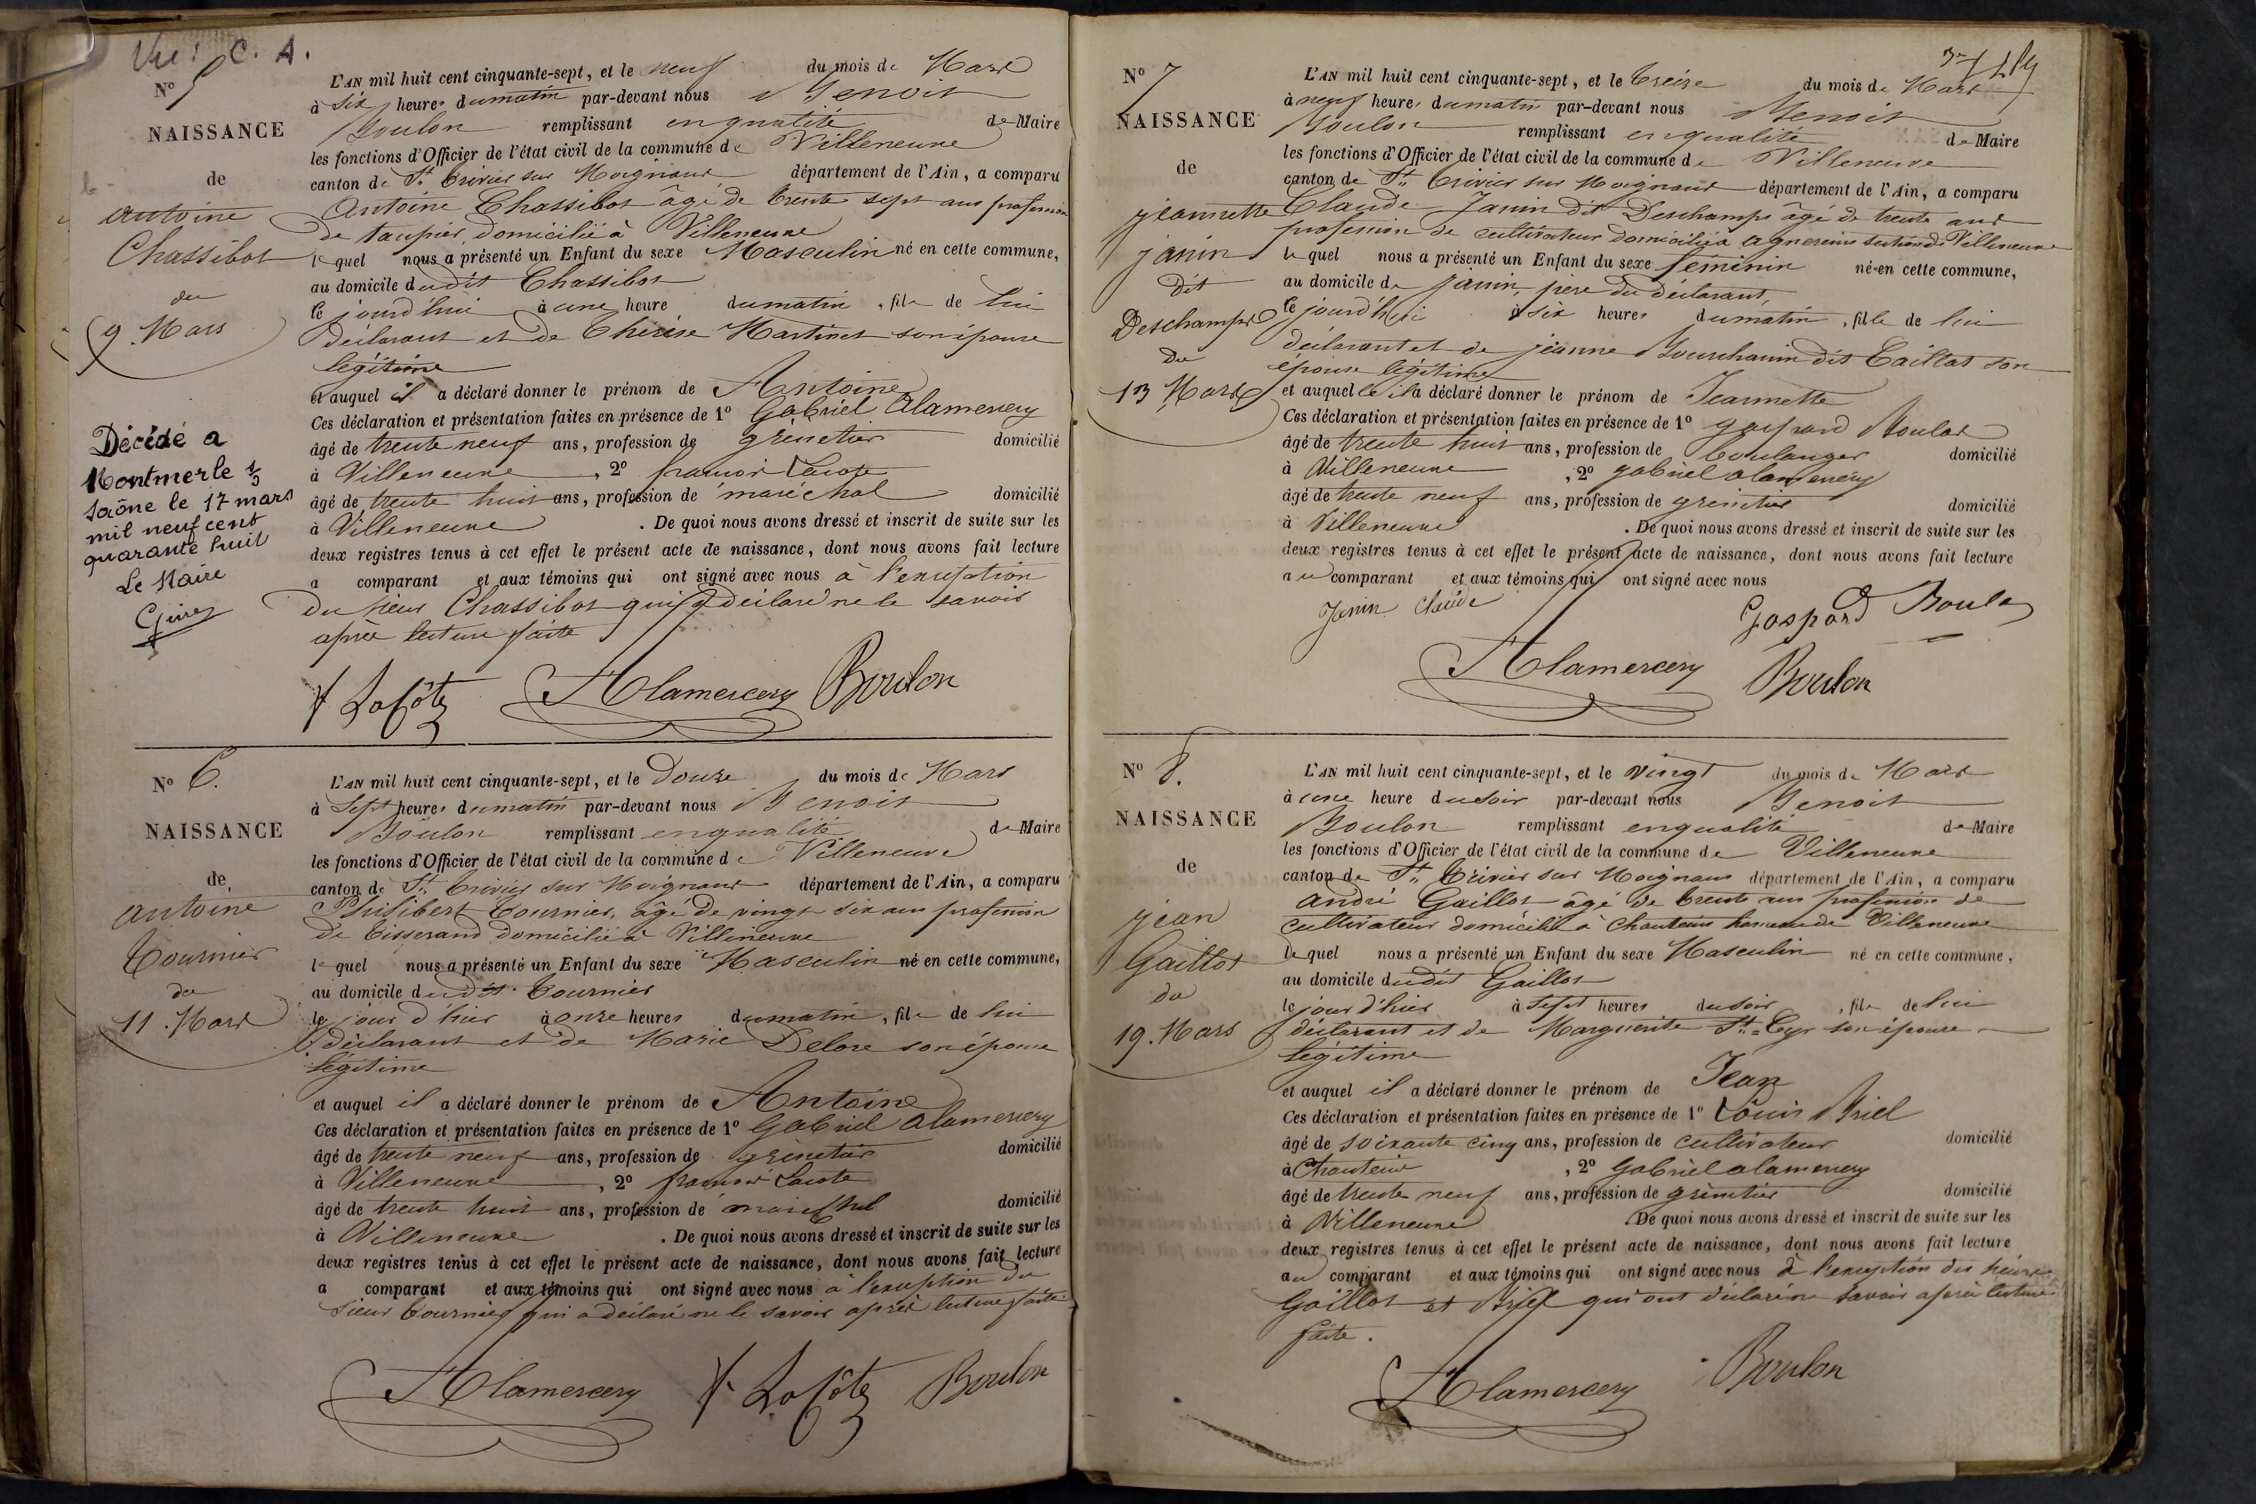 Vu: C. A.
N° 5
NAISSANCE
de
antoine
Chassibot
du
9 Mars
Décédé a
Montmerle s/
Saône le 17 mars
mil neuf cent
quarante huit
Le Maire
L'AN mil huit cent cinquante-sept, et le neuf du mois de Mars
à six heures du matin par-devant nous Benoit
Boulon remplissant en qualité de Maire
les fonctions d'Officier de l'état civil de la commune de Villeneuve
canton de St. Trivier sur Moignans département de l'Ain, a comparu
Antoine Chassibot âgé de trente sept ans profession
de taupier, domicilié à Villeneuve
lequel nous a présenté un Enfant du sexe Masculin né en cette commune,
au domicile dudit Chassibot
le jourd'hui à une heure du matin, fils de lui
déclarant et de Thérèse Martinet son épouse
légitime
et auquel il a déclaré donner le prénom de Antoine
Ces déclaration et présentation faites en présence de 1° Gabriel Alamercery
âgé de trente neuf ans, profession de grènetier domicilié
à Villeneuve, 2° françois Lacote
âgé de trente huit ans, profession de maréchal domicilié
à Villeneuve. De quoi nous avons dressé et inscrit de suite sur les
deux registres tenus à cet effet le présent acte de naissance, dont nous avons fait lecture
a comparant et aux témoins qui ont signé avec nous à l'exception
du sieur Chassibot qui a déclaré ne le savoir
après lecture faite
f Lacôte Alamercery Boulon
N° 6.
NAISSANCE
de
antoine
Tournier
du
11. Mars
L'AN mil huit cent cinquante-sept, et le Douze du mois de Mars
à Sept heures du matin par-devant nous Benoit
Boulon remplissant en qualité de Maire
les fonctions d'Officier de l'état civil de la commune de Villeneuve
canton de St. Trivier sur Moignans département de l'Ain, a comparu
Philibert Tournier, âgé de vingt six ans profession
de tisserand domicilié à Villeneuve
lequel nous a présenté un Enfant du sexe Masculin né en cette commune,
au domicile dudit Tournier
le jour d'hier à onze heures du matin, fils de lui
déclarant et de Marie Delore son épouse
légitime
et auquel il a déclaré donner le prénom de Antoine
Ces déclaration et présentation faites en présence de 1° Gabriel Alamercery
âgé de trente neuf ans, profession de grènetier domicilié
à Villeneuve, 2° françois Lacote
âgé de trente huit ans, profession de maréchal domicilié
à Villeneuve. De quoi nous avons dressé et inscrit de suite sur les
deux registres tenus à cet effet le présent acte de naissance, dont nous avons fait lecture
a comparant et aux témoins qui ont signé avec nous à l'exception du
sieur Tournier qui a déclaré ne le savoir après lecture faite
Alamercery f. Lacôte Boulon
N° 7
NAISSANCE
de
jeannette
janin
dit
Deschamps
du
13 Mars
L'AN mil huit cent cinquante-sept, et le treize du mois de Mars
à neuf heures du matin par-devant nous Benoit
Boulon remplissant en qualité de Maire
les fonctions d'Officier de l'état civil de la commune de Villeneuve
canton de St. Trivier sur Moignans département de l'Ain, a comparu
Claude Janin dit Deschamps âgé de trente ans
profession de cultivateur domicilié à agnereins section de Villeneuve
lequel nous a présenté un Enfant du sexe féminin né en cette commune,
au domicile de Janin, père du déclarant,
le jourd'hui à six heures du matin, fille de lui
déclarant et de jeanne Bourchanin dit Caillat son
épouse légitime
et auquelle il a déclaré donner le prénom de Jeannette
Ces déclaration et présentation faites en présence de 1° gaspard Boulas
âgé de trente huit ans, profession de boulanger domicilié
à Villeneuve, 2° gabriel alamercery
âgé de trente neuf ans, profession de grènetier domicilié
à Villeneuve. De quoi nous avons dressé et inscrit de suite sur les
deux registres tenus à cet effet le présent acte de naissance, dont nous avons fait lecture
au comparant et aux témoins qui ont signé avec nous
Janin Claude Gaspard Boula
Alamercery Boulon
N° 8.
NAISSANCE
de
jean
Gaillot
du
19. Mars
L'AN mil huit cent cinquante-sept, et le vingt du mois de Mars
à une heure du soir par-devant nous Benoit
Boulon remplissant en qualité de Maire
les fonctions d'Officier de l'état civil de la commune de Villeneuve
canton de St. Trivier sur Moignans département de l'Ain, a comparu
André Gaillot âgé de trente ans profession de
cultivateur domicilié à Chanteins hameau de Villeneuve
lequel nous a présenté un Enfant du sexe Masculin né en cette commune,
au domicile dudit Gaillot
le jour d'hier à sept heures du soir, fils de lui
déclarant et de Marguerite St. Cyr son épouse
légitime
et auquel il a déclaré donner le prénom de Jean
Ces déclaration et présentation faites en présence de 1° Louis Briel
âgé de soixante cinq ans, profession de cultivateur domicilié
à Chanteins, 2° Gabriel alamercery
âgé de trente neuf ans, profession de grènetier domicilié
à Villeneuve. De quoi nous avons dressé et inscrit de suite sur les
deux registres tenus à cet effet le présent acte de naissance, dont nous avons fait lecture
au comparant et aux témoins qui ont signé avec nous à l'exception des sieurs
Gaillot et Briel qui ont déclaré ne savoir après lecture
faite.
Alamercery Boulon